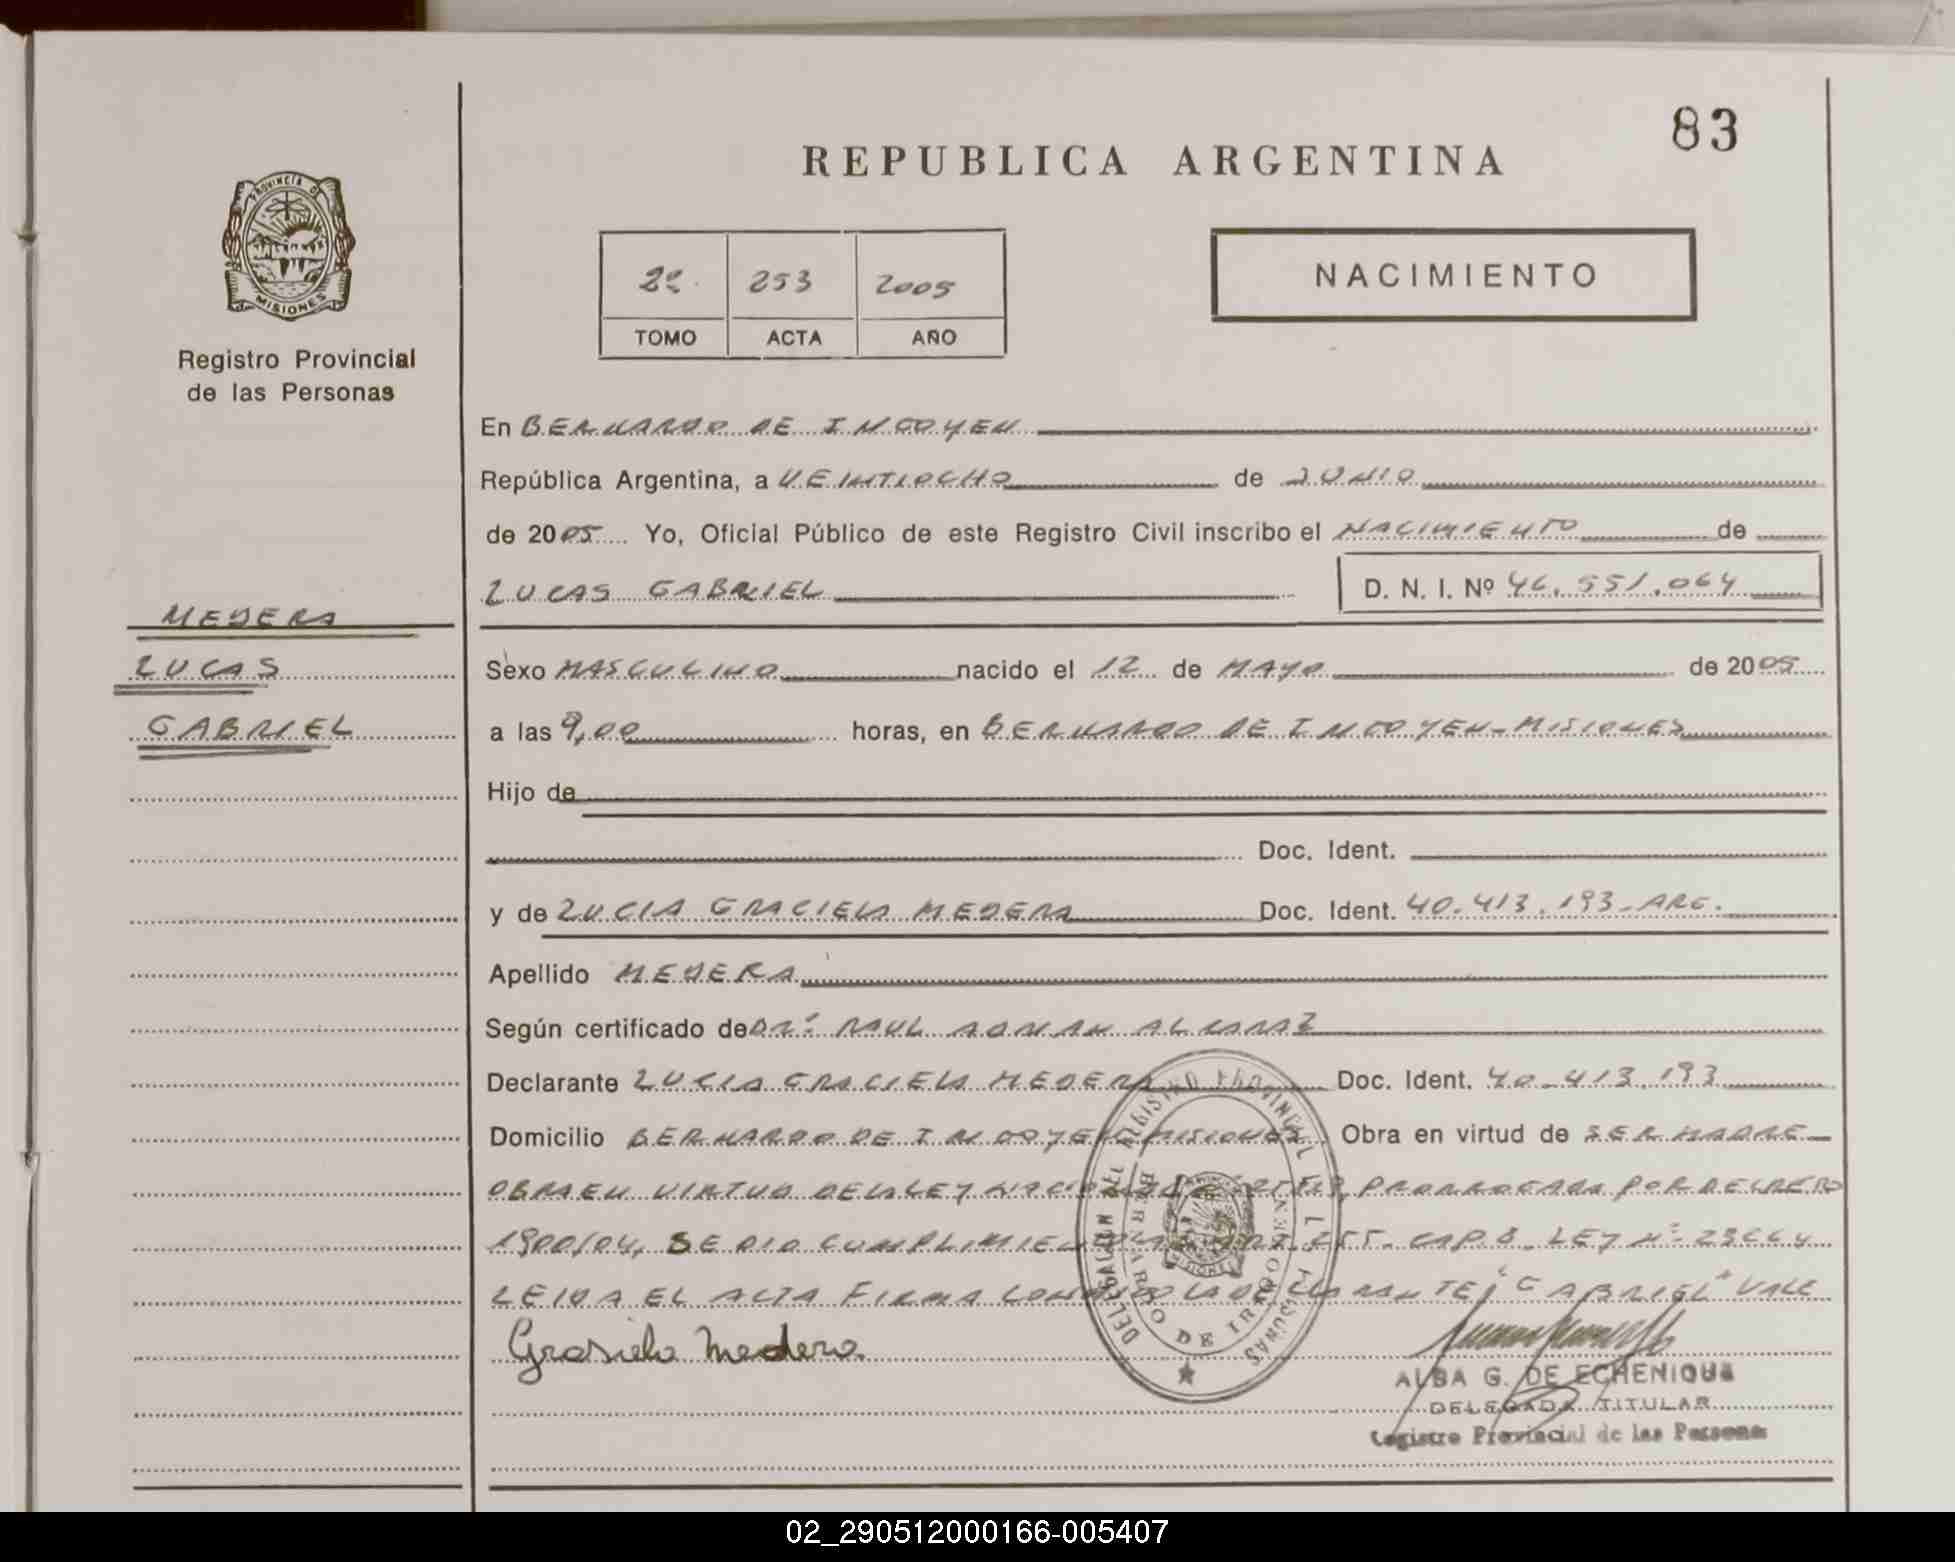 83
REPUBLICA ARGENTINA
PROVINCIA D
MISIONES
Registro Provincial
de las Personas
2º. 253 2005
TOMO ACTA AÑO
NACIMIENTO
En BERNARDO DE IRIGOYEN
República Argentina, a VEINTIOCHO de JUNIO
de 2005 Yo, Oficial Público de este Registro Civil inscribo el NACIMIENTO de
LUCAS GABRIEL D. N. I. Nº 46.551.064
MEDERA
LUCAS
GABRIEL
Sexo MASCULINO nacido el 12 de MAYO de 2005
a las 9,00 horas, en BERNARDO DE IRIGOYEN-MISIONES
Hijo de
Doc. Ident.
y de LUCIA GRACIELA MEDERA Doc. Ident. 40.413.193-ARG.
Apellido MEDERA
Según certificado de DR. RAUL ADRIAN ALCARAZ
Declarante LUCIA GRACIELA MEDERA Doc. Ident. 40.413.193
Domicilio BERNARDO DE IRIGOYEN MISIONES Obra en virtud de SER MADRE
OBRA EN VIRTUD DE LA LEY PRORROGADA POR DECRETO
1900/04, SE DIO CUMPLIMIENTO ART. 255. CAP.8. LEY Nº
LEIDA EL ACTA FIRMA CONMIGO LA DECLARANTE "GABRIEL" VALE
Grasiela Medera
DELEGACION DEL REGISTRO PROVINCIAL DE LAS PERSONAS
BERNARDO DE IRIGOYEN
MISIONES
ALBA G. DE ECHENIQUE
DELEGADA TITULAR
Registro Provincial de las Personas
02_290512000166-005407